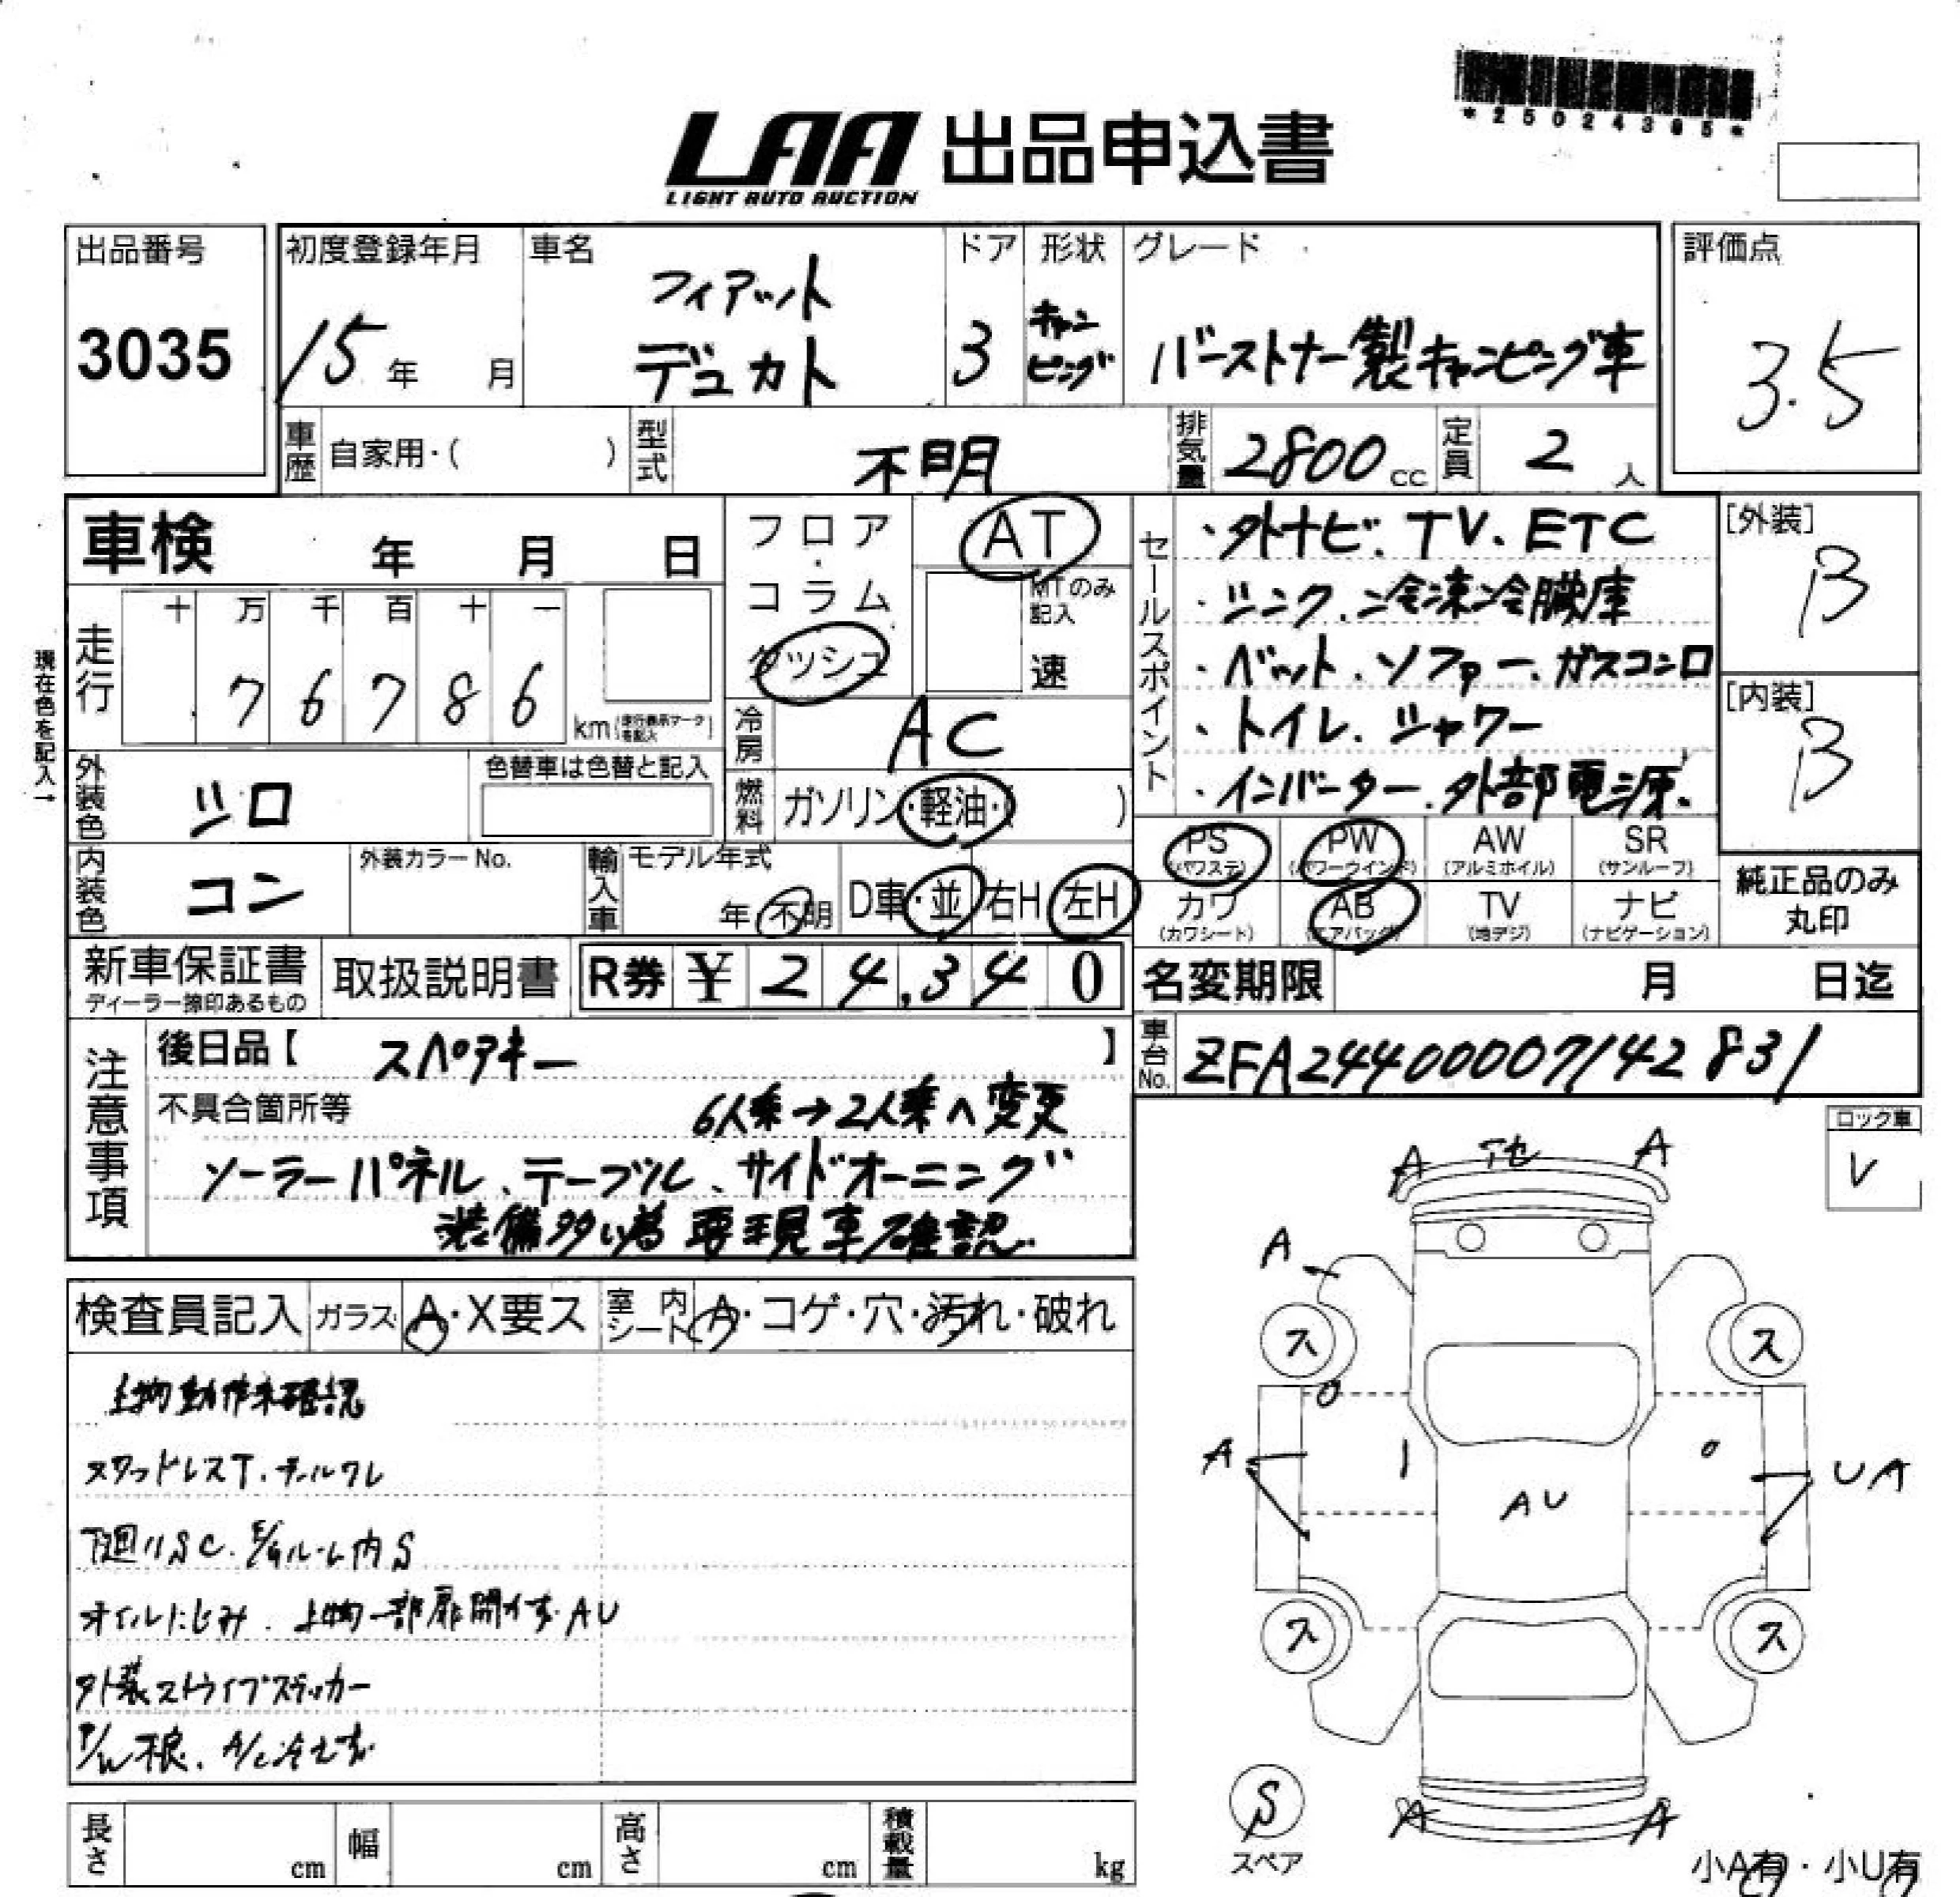 *25024395*
LAA 出品申込書
LIGHT AUTO AUCTION
出品番号
3035
初度登録年月
15年 月
車名
フィアット
デュカト
ドア
3
形状
キャン
ピング
グレード
バーストナー製キャンピング車
評価点
3.5
車歴 自家用・( )
型式 不明
排気量 2800cc
定員 2人
車検 年 月 日
フロア・コラム
ダッシュ
AT
MTのみ記入
速
セールスポイント
・外ナビ、TV、ETC
・シンク、冷凍冷臓庫
・ベット、ソファー、ガスコンロ
・トイレ、シャワー
・インバーター、外部電源、
[外装]
B
[内装]
B
現在色を記入→
走行
十 万 千 百 十 一
7 6 7 8 6 km
(走行表示マークを記入)
冷房 AC
外装色 シロ
色替車は色替と記入
燃料 ガソリン・軽油・( )
内装色 コン
外装カラーNo.
輸入車 モデル年式
年・不明
D車・並 右H 左H
PS (パワステ)
PW (パワーウインド)
AW (アルミホイル)
SR (サンルーフ)
カワ (カワシート)
AB (エアバッグ)
TV (地デジ)
ナビ (ナビゲーション)
純正品のみ
丸印
新車保証書
ディーラー捺印あるもの
取扱説明書
R券 ¥24,340
名変期限 月 日迄
車台No. ZFA24400007142831
注意事項
後日品【 スペアキー 】
不具合箇所等
6人乗→2人乗へ変更
ソーラーパネル、テーブル、サイドオーニング
装備多い為 要現車確認
ロック車
レ
検査員記入 ガラス A・X要ス 室内シート A・コゲ・穴・汚れ・破れ
上物動作未確認
スタッドレスT.
下廻りSC. E/Gルーム内S
オイルにじみ. 上物一部扉開かず. AU
外装ストライプステッカー
P/W不良. A/C冷えず
A A
A
ス ス
A
AU
UA
ス ス
S
スペア
A A
小A有・小U有
長さ cm
幅 cm
高さ cm
積載量 kg